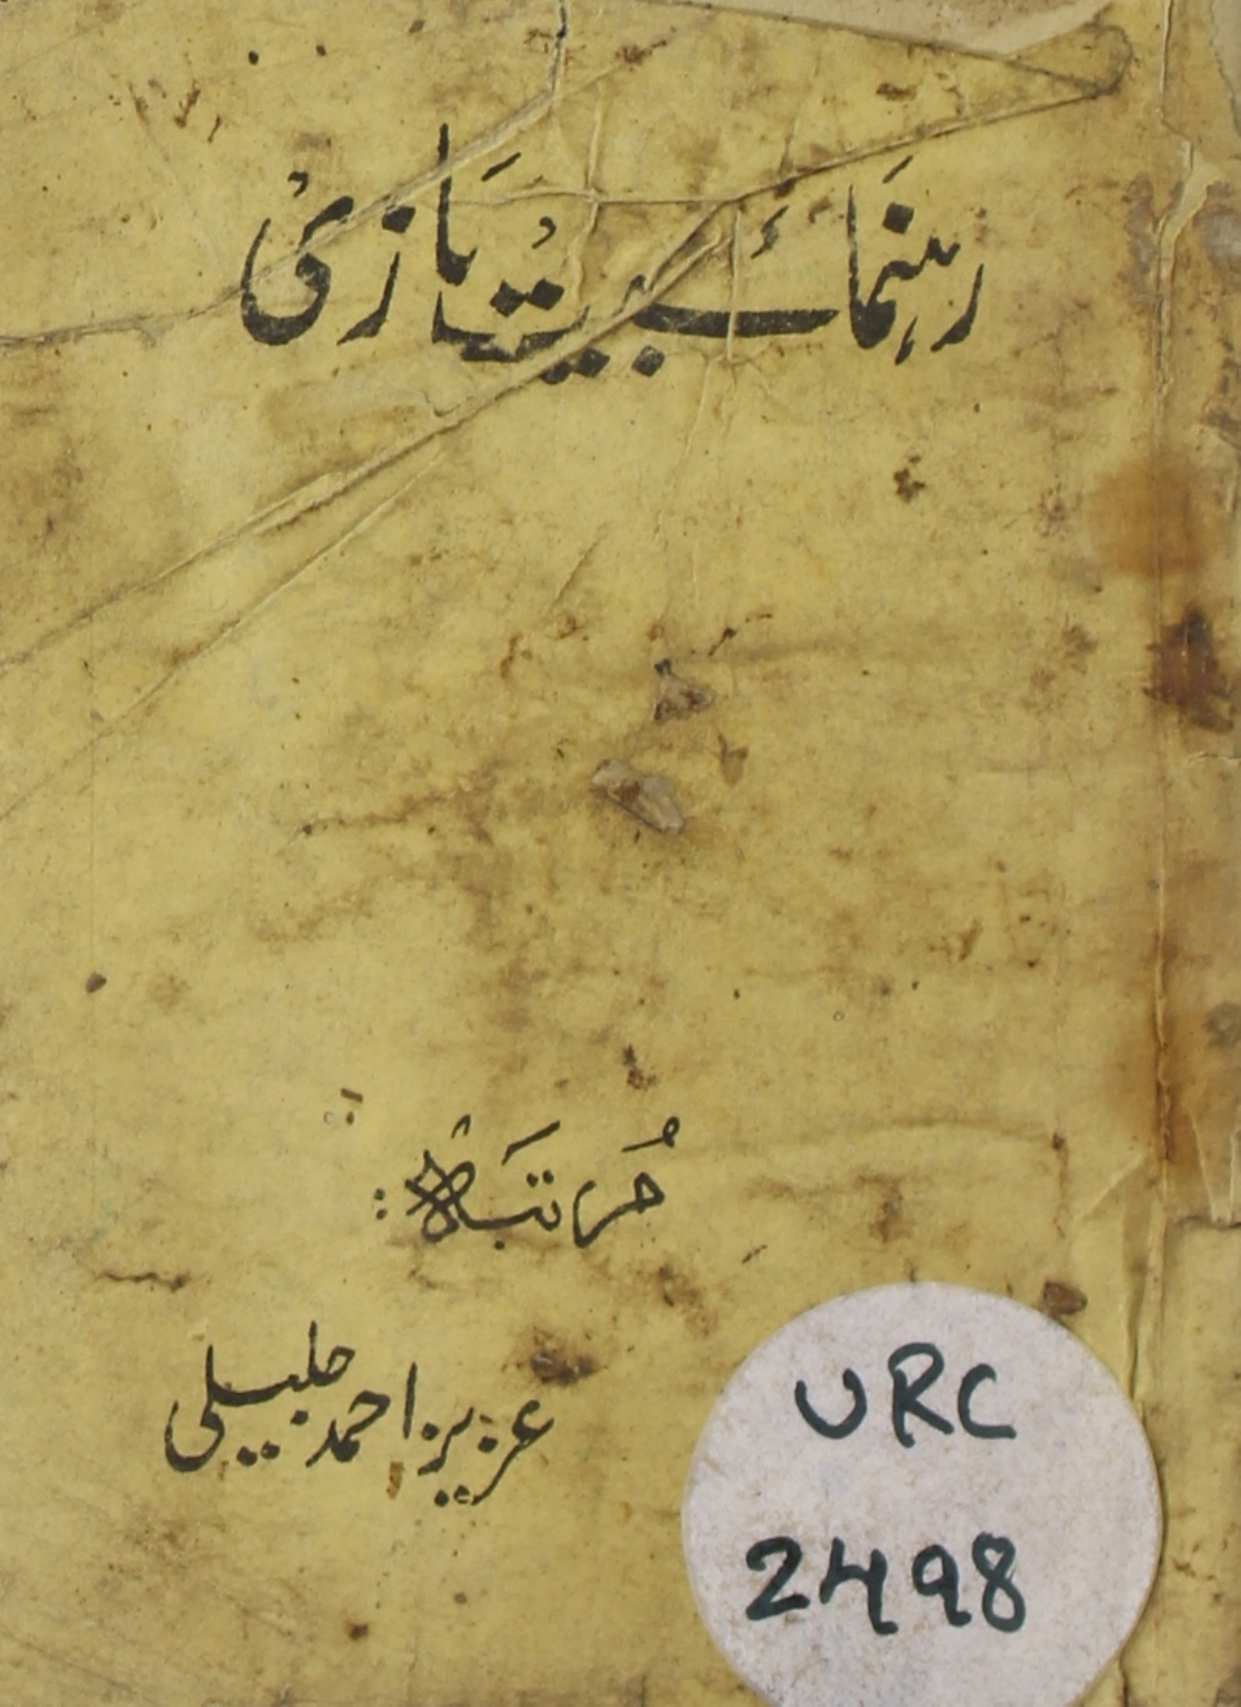 رہنمائے بیت بازی
مرتبہ :
عزیز احمد جلیلی
URC
2498